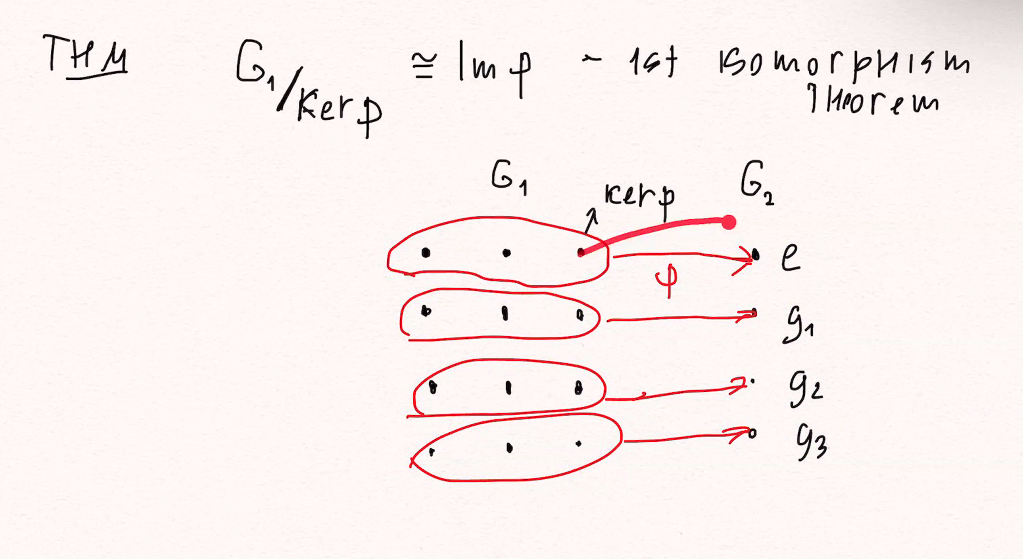 THM G₁/Kerφ ≅ Imφ ~ 1st isomorphism
Theorem
G₁ kerφ G₂
φ e
g₁
g₂
g₃